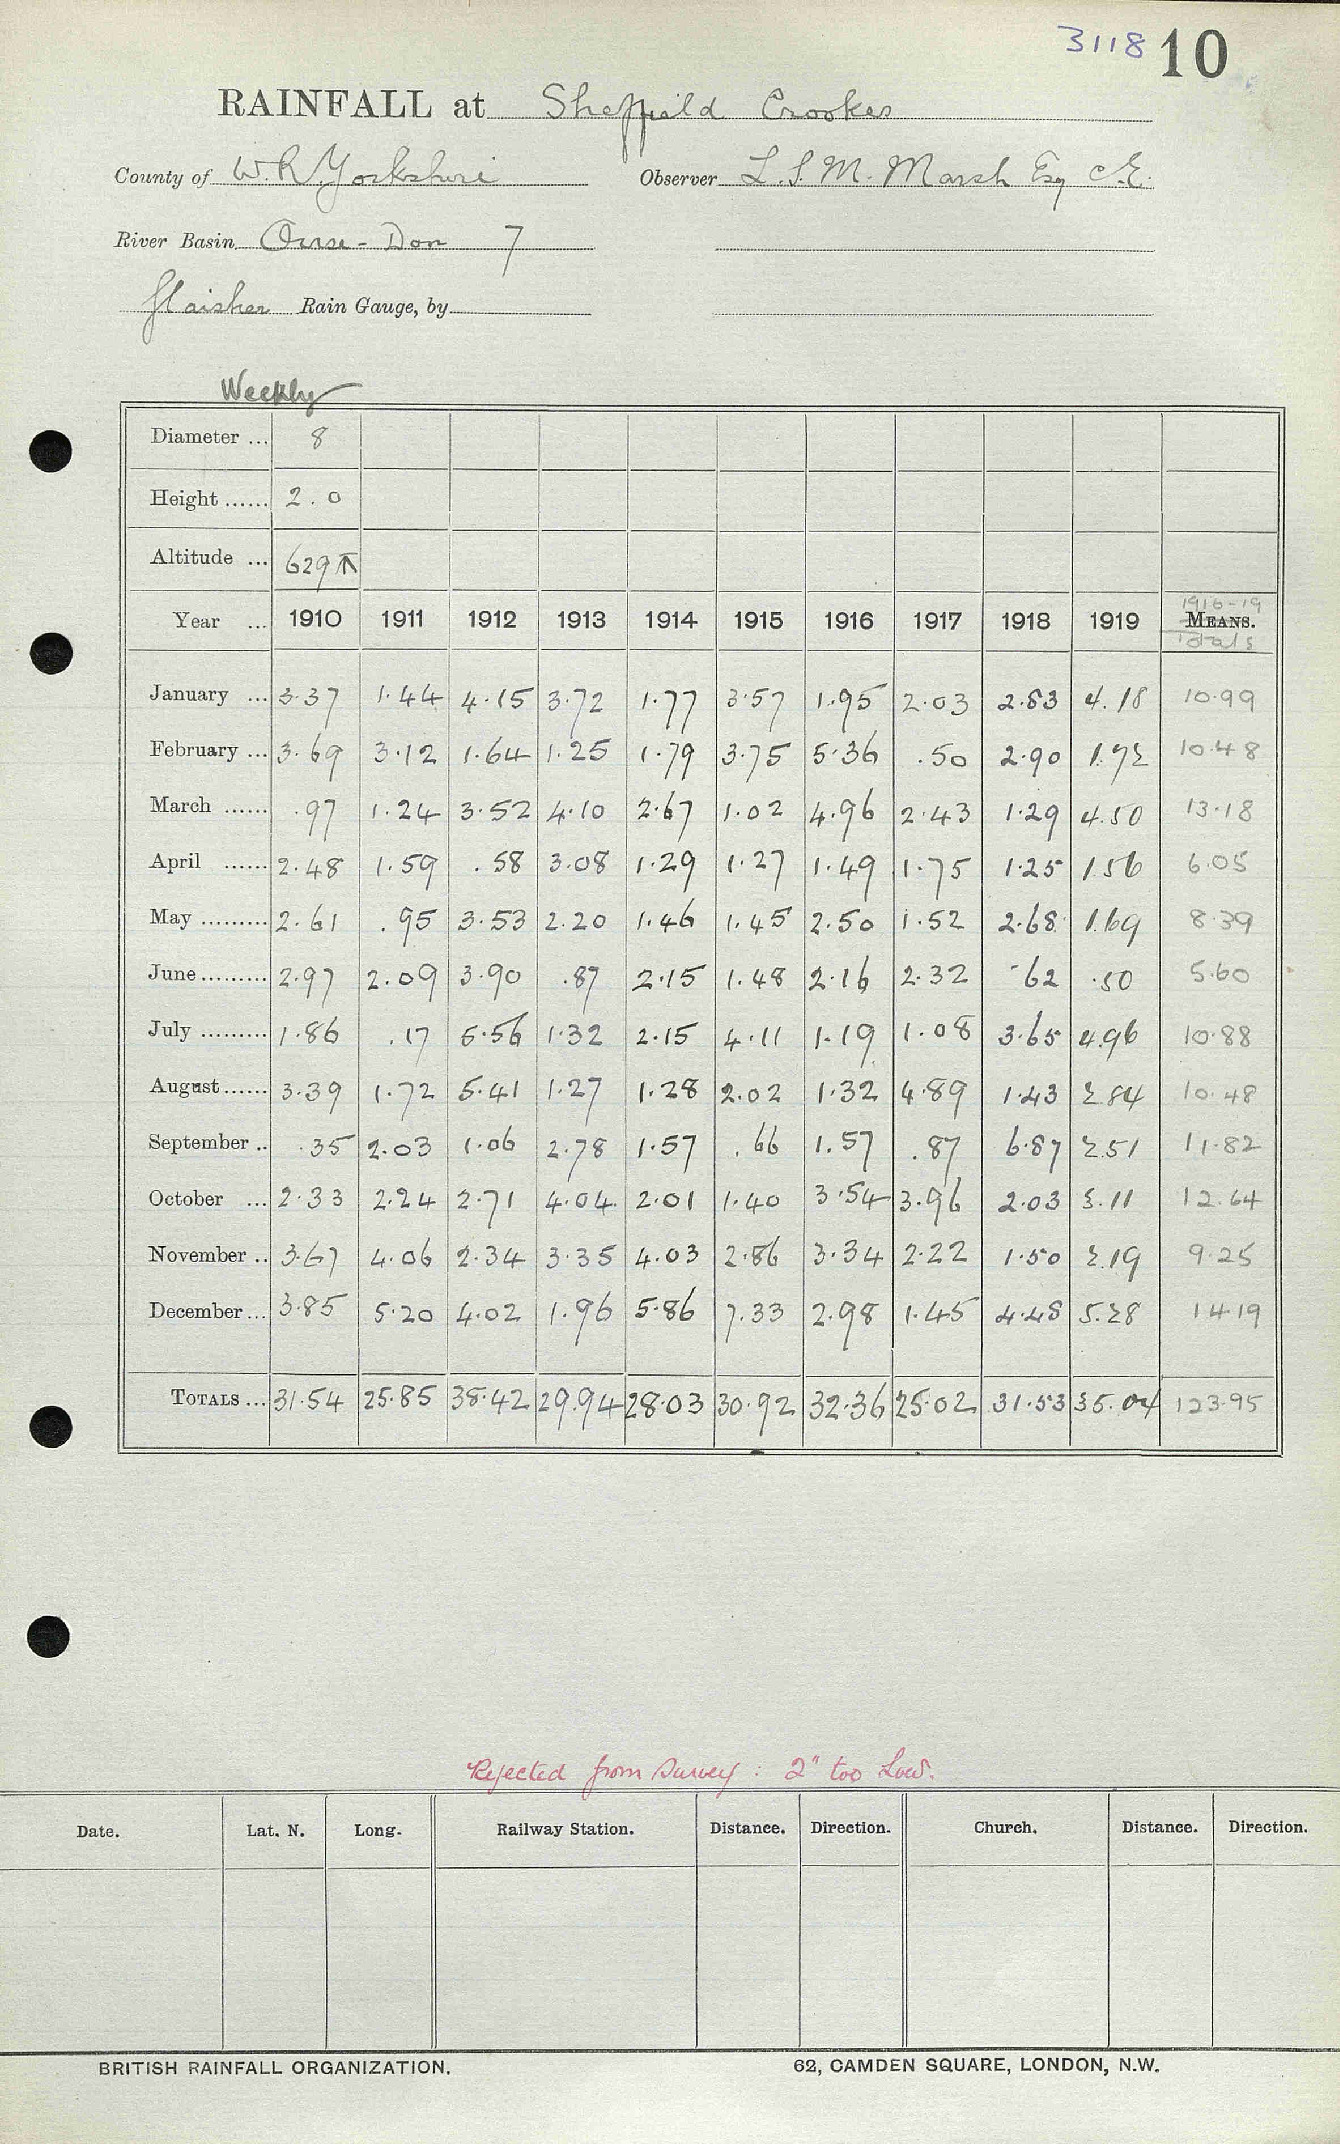 3118 10
RAINFALL at Sheffield Crookes
County of W.R. Yorkshire Observer L.S.M. Marsh Esq C.E.
River Basin Ouse - Don 7
Glaisher Rain Gauge, by
Weekly
Diameter ... 8
Height ...... 2.0
Altitude ... 629 T
1916-19
Year ... 1910 1911 1912 1913 1914 1915 1916 1917 1918 1919 MEANS.
Totals
January ... 3.37 1.44 4.15 3.72 1.77 3.57 1.95 2.03 2.83 4.18 10.99
February ... 3.69 3.12 1.64 1.25 1.79 3.75 5.36 .50 2.90 1.72 10.48
March ...... .97 1.24 3.52 4.10 2.67 1.02 4.96 2.43 1.29 4.50 13.18
April ...... 2.48 1.59 .58 3.08 1.29 1.27 1.49 1.75 1.25 1.56 6.05
May ......... 2.61 .95 3.53 2.20 1.46 1.45 2.50 1.52 2.68 1.69 8.39
June ......... 2.97 2.09 3.90 .87 2.15 1.48 2.16 2.32 .62 .50 5.60
July ......... 1.86 .17 5.56 1.32 2.15 4.11 1.19 1.08 3.65 4.96 10.88
August ...... 3.39 1.72 5.41 1.27 1.28 2.02 1.32 4.89 1.43 2.84 10.48
September .. .35 2.03 1.06 2.78 1.57 .66 1.57 .87 6.87 2.51 11.82
October ... 2.33 2.24 2.71 4.04 2.01 1.40 3.54 3.96 2.03 3.11 12.64
November .. 3.67 4.06 2.34 3.35 4.03 2.86 3.34 2.22 1.50 2.19 9.25
December ... 3.85 5.20 4.02 1.96 5.86 7.33 2.98 1.45 4.48 5.28 14.19
TOTALS ... 31.54 25.85 38.42 29.94 28.03 30.92 32.36 25.02 31.53 35.04 123.95
Rejected from Survey : 2" too Low.
Date. Lat. N. Long. Railway Station. Distance. Direction. Church. Distance. Direction.
BRITISH RAINFALL ORGANIZATION. 62, CAMDEN SQUARE, LONDON, N.W.